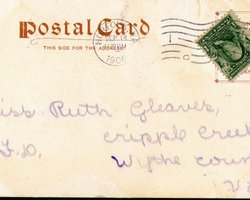 Postal Card
THIS SIDE FOR THE ADDRESS
190
1
C
iss Ruth Gleaves,
Cripple Creek
Wythe Coun